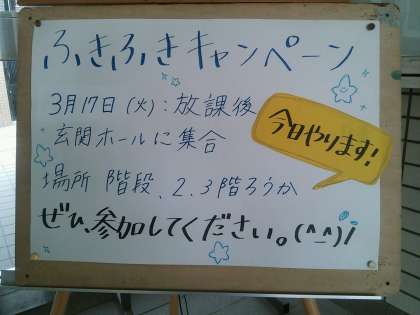 ふきふきキャンペーン
3月17日(火):放課後
玄関ホールに集合
今日やります!
場所 階段、2.3階ろうか
ぜひ、参加してください。(^_^)/